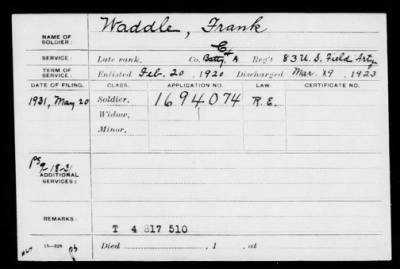 NAME OF SOLDIER: Waddle, Frank
SERVICE: Late rank, Co. Batty. A Reg't 83 U.S. Field Arty
TERM OF SERVICE: Enlisted Feb. 20, 1920 Discharged Mar. 19, 1923
DATE OF FILING. CLASS. APPLICATION NO. LAW. CERTIFICATE NO.
1931, May 20 Soldier, 1694074 R.E.
Widow,
Minor,
ADDITIONAL SERVICES:
REMARKS: T 4 817 510
Died , 1 , at